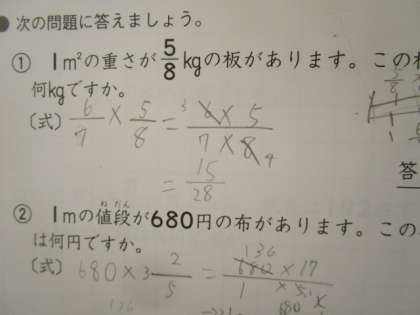 ● 次の問題に答えましょう。
① 1m²の重さが5/8kgの板があります。この
何kgですか。
〔式〕 6/7 × 5/8 = 6×5/7×8
3 4
= 15/28
答
② 1mの値段が680円の布があります。この
ねだん
は何円ですか。
〔式〕 680×3 2/5 = 680×17/1×5
136 1